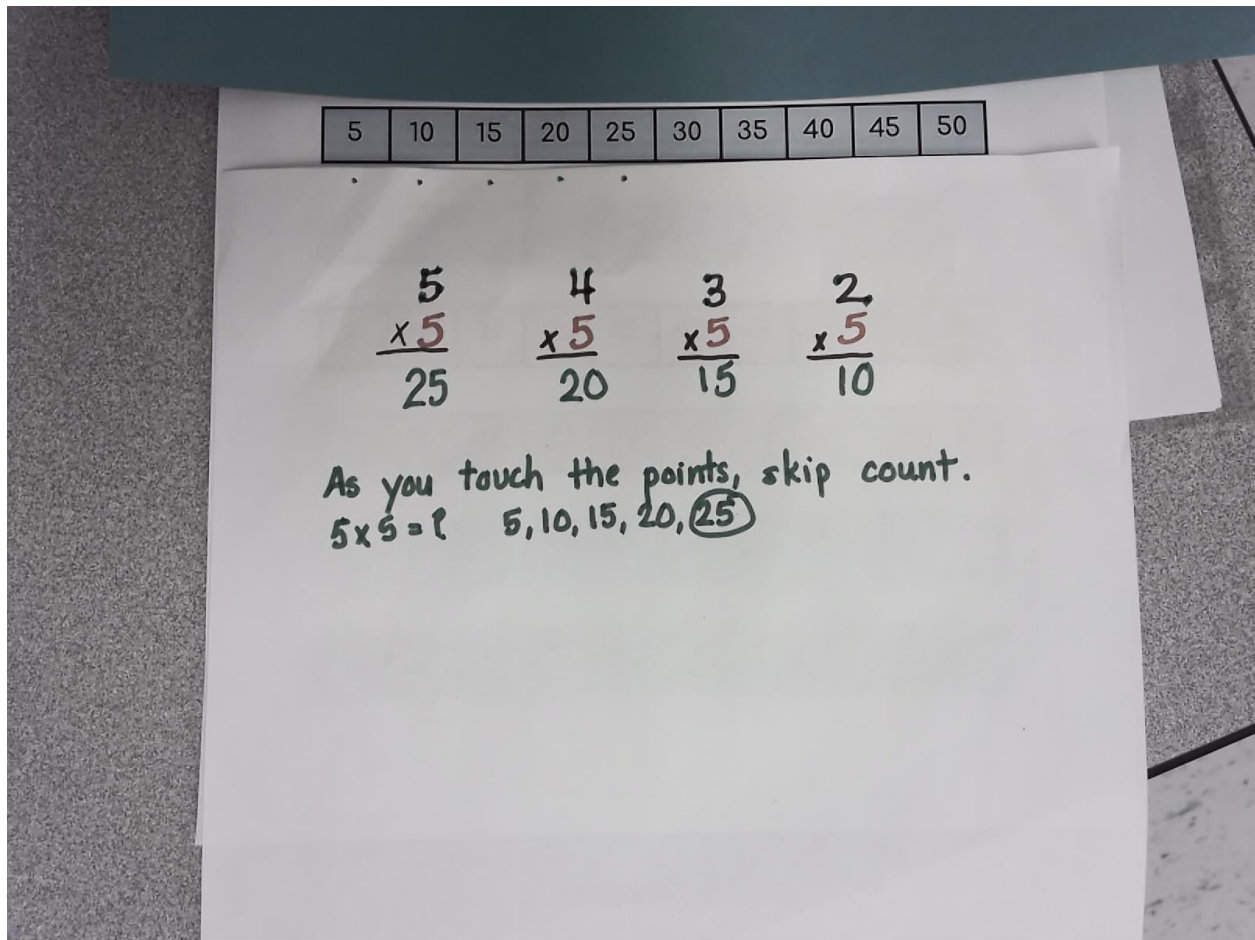 5 10 15 20 25 30 35 40 45 50
5 4 3 2
x 5 x 5 x 5 x 5
25 20 15 10
As you touch the points, skip count.
5 x 5 = ? 5, 10, 15, 20, 25